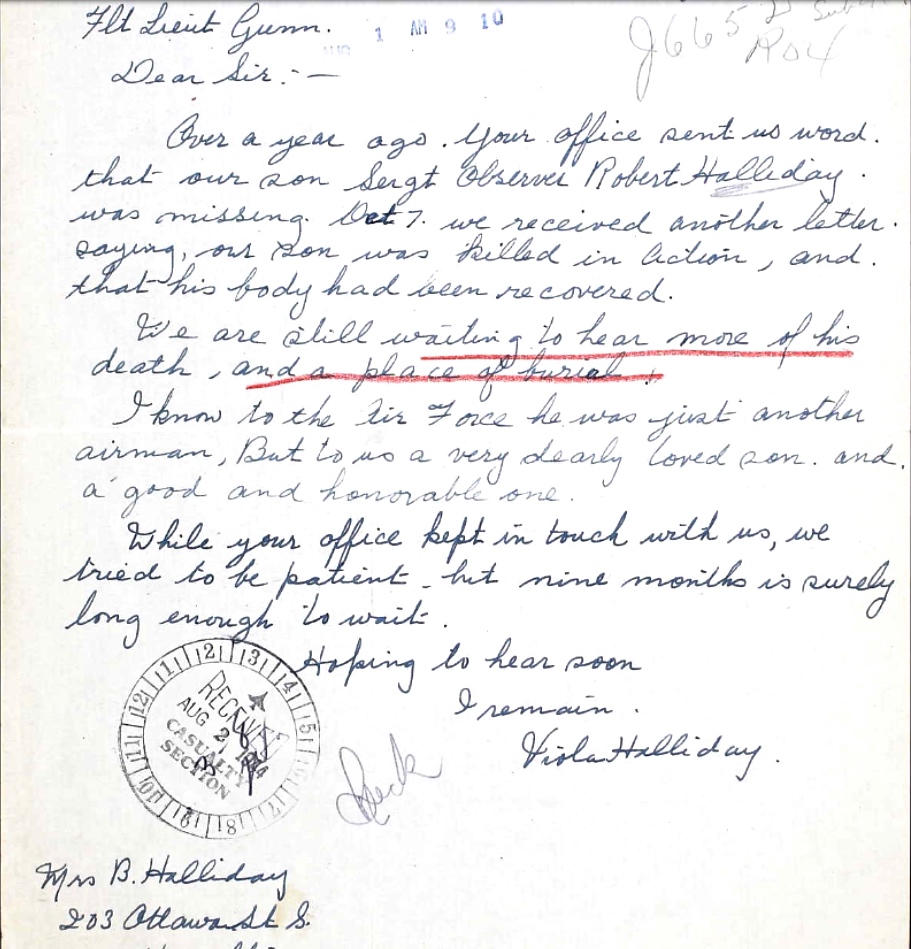 Flt Lieut Gunn.
AUG 1 AM 9 10
J665
R04
Dear Sir:—
Over a year ago. Your office sent us word.
that our son Sergt Observer Robert Halliday.
was missing. Oct 7. we received another letter.
saying, our son was killed in action, and.
that his body had been recovered.
We are still waiting to hear more of his
death, and a place of burial.
I know to the Air Force he was just another
airman, But to us a very dearly loved son. and.
a good and honorable one.
While your office kept in touch with us, we
tried to be patient - but nine months is surely
long enough to wait.
Hoping to hear soon
I remain.
Viola Halliday.
RECEIVED
AUG 2
CASUALTY
SECTION
Mrs B. Halliday
203 Ottawa St S.